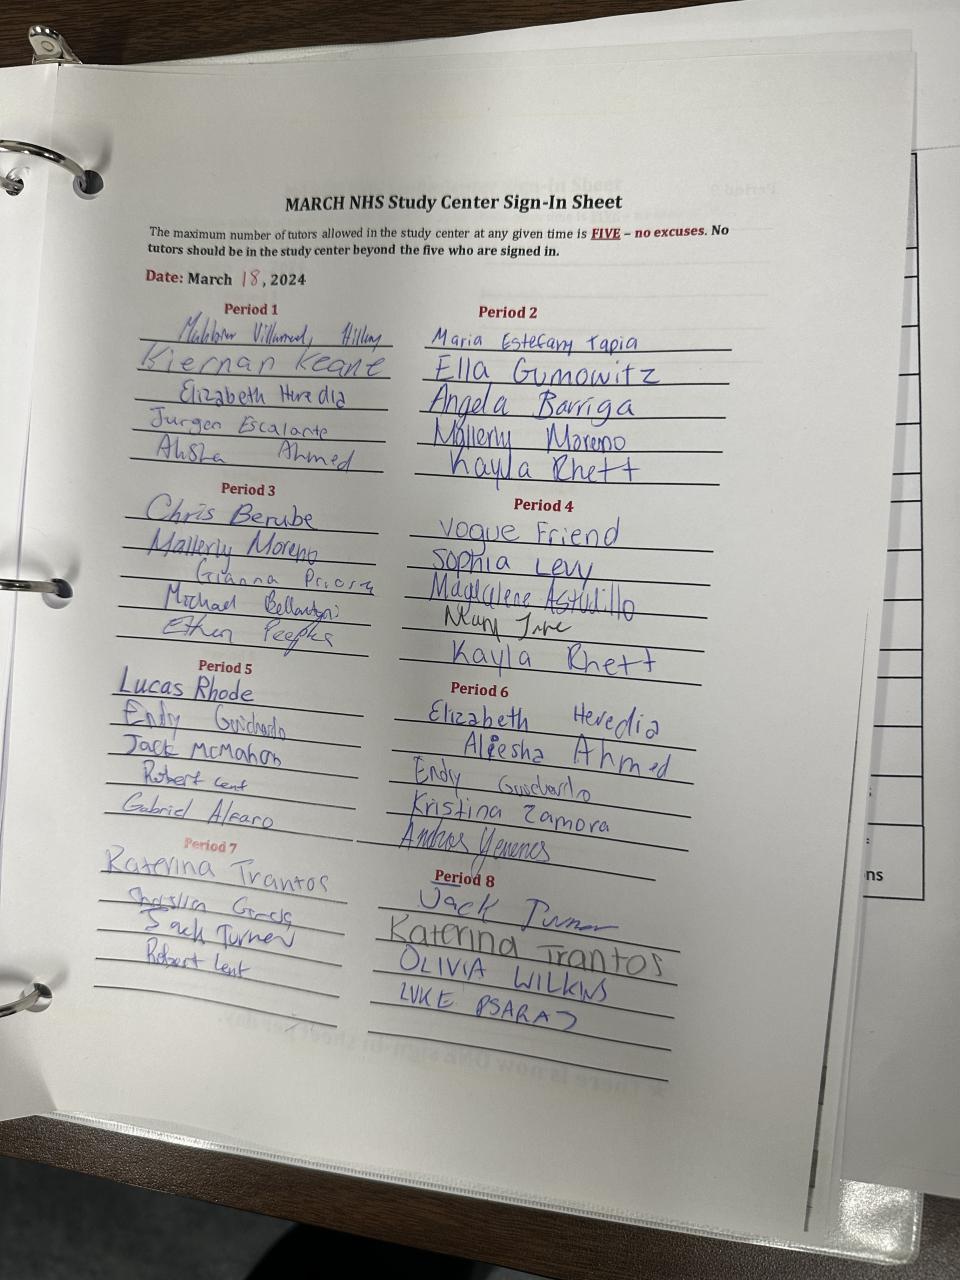 MARCH NHS Study Center Sign-In Sheet
The maximum number of tutors allowed in the study center at any given time is FIVE – no excuses. No
tutors should be in the study center beyond the five who are signed in.
Date: March 18, 2024
Period 1
Hillary
Kiernan Keane
Elizabeth Heredia
Jurgen Escalante
Alisha Ahmed
Period 2
Maria Estefany Tapia
Ella Gumowitz
Angela Barriga
Mallerly Moreno
Kayla Rhett
Period 3
Chris Berube
Mallerly Moreno
Gianna
Michael
Ethan
Period 4
Vogue Friend
Sophia Levy
Magdalene Astudillo
Kayla Rhett
Period 5
Lucas Rhode
Endy Guichardo
Jack McMahon
Robert Lent
Gabriel Alfaro
Period 6
Elizabeth Heredia
Aleesha Ahmed
Endy Guichardo
Kristina Zamora
Period 7
Katerina Trantos
Jack Turner
Robert Lent
Period 8
Jack Turner
Katerina Trantos
OLIVIA WILKINS
LUKE PSARAS
ns